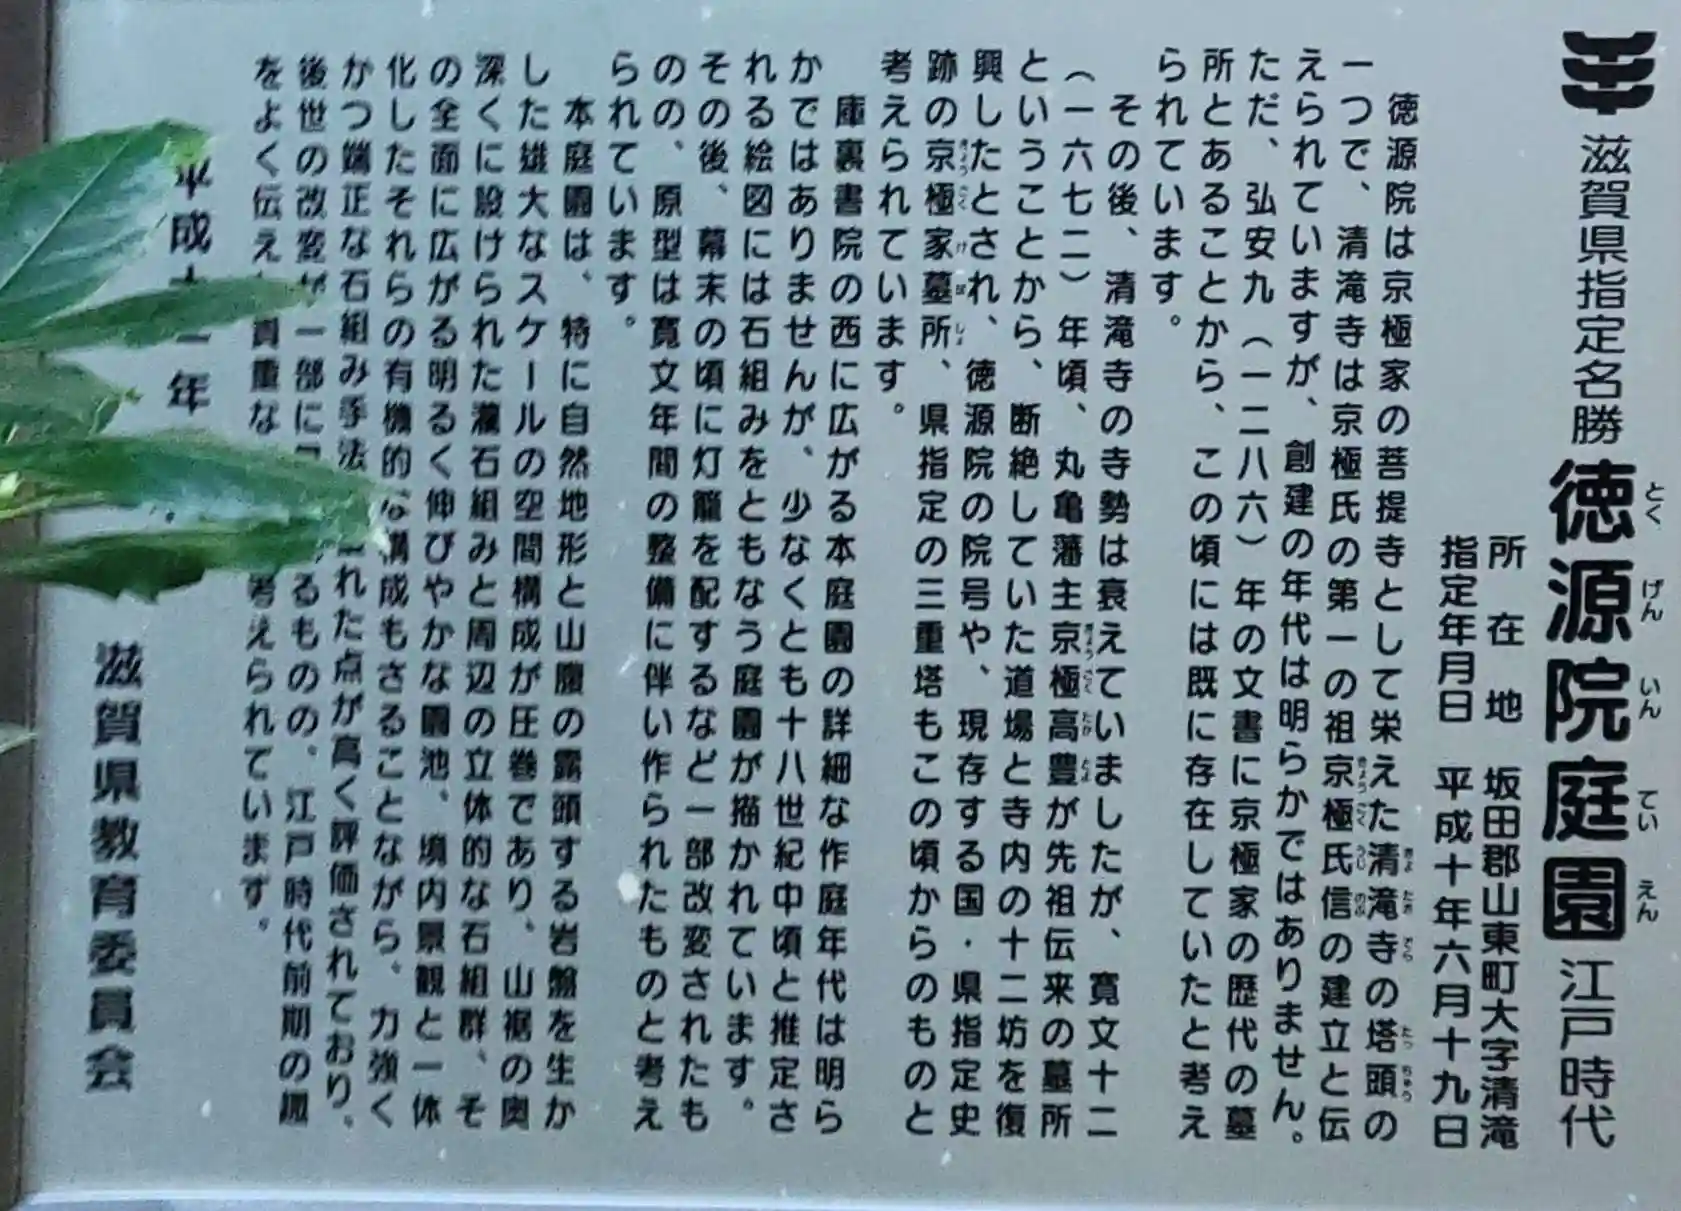 滋賀県指定名勝 徳源院庭園 江戸時代
とく げん いん てい えん
所在地 坂田郡山東町大字清滝
指定年月日 平成十年六月十九日
徳源院は京極家の菩提寺として栄えた清滝寺の塔頭の
一つで、清滝寺は京極氏の第一の祖京極氏信の建立と伝
えられていますが、創建の年代は明らかではありません。
ただ、弘安九（一二八六）年の文書に京極家の歴代の墓
所とあることから、この頃には既に存在していたと考え
られています。
その後、清滝寺の寺勢は衰えていましたが、寛文十二
（一六七二）年頃、丸亀藩主京極高豊が先祖伝来の墓所
ということから、断絶していた道場と寺内の十二坊を復
興したとされ、徳源院の院号や、現存する国・県指定史
跡の京極家墓所、県指定の三重塔もこの頃からのものと
考えられています。
庫裏書院の西に広がる本庭園の詳細な作庭年代は明ら
かではありませんが、少なくとも十八世紀中頃と推定さ
れる絵図には石組みをともなう庭園が描かれています。
その後、幕末の頃に灯籠を配するなど一部改変されたも
のの、原型は寛文年間の整備に伴い作られたものと考え
られています。
本庭園は、特に自然地形と山腹の露頭する岩盤を生か
した雄大なスケールの空間構成が圧巻であり、山裾の奥
深くに設けられた滝石組みと周辺の立体的な石組群、そ
の全面に広がる明るく伸びやかな園池、境内景観と一体
化したそれらの有機的な構成もさることながら、力強く
かつ端正な石組み手法 れた点が高く評価されており、
後世の改変が一部に るものの、江戸時代前期の趣
をよく伝え 貴重な 考えられています。
平成十 年
滋賀県教育委員会